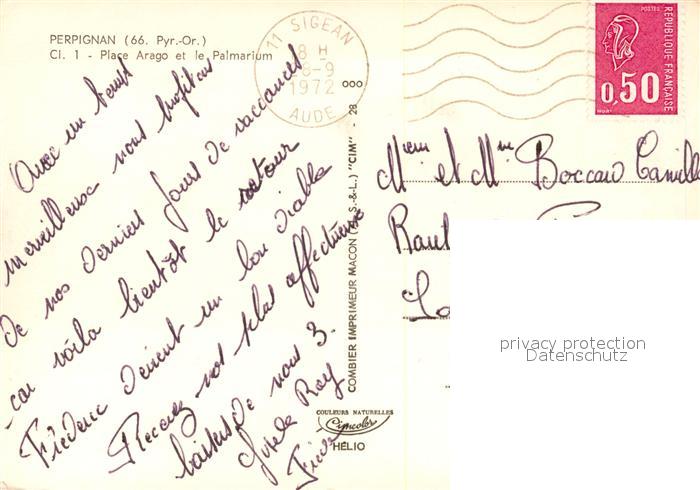 PERPIGNAN (66. Pyr.-Or.)
Cl. 1 - Place Arago et le Palmarium
11 SIGEAN
8 H
28-9
1972
AUDE
POSTES
REPUBLIQUE FRANÇAISE
0,50
Avec un temps
merveilleux nous profitons
de nos derniers jours de vaccances
car voila bientôt le retour
Frédéric devient un bon diable
Recevez nos plus affectueux
baisers de nous 3.
Gisèle Roy
Fred
000
COMBIER IMPRIMEUR MACON (S.-&-L.) "CIM" - 28
COULEURS NATURELLES
Cimcolor
HÉLIO
Mieur et Mme Boccard Camille
privacy protection
Datenschutz